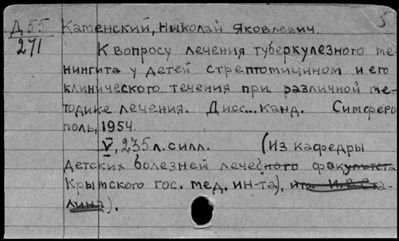 Д55 Каменский, Николай Яковлевич. 5
271
К вопросу лечения туберкулезного ме-
нингита у детей стрептомицином и его
клинического течения при различной ме-
тодике лечения. Дисс... канд. Симферо
поль, 1954.
V, 235 л. с илл. (Из кафедры
Детских болезней лечебного факультета
Крымского гос. мед. ин-та), им. И.В. Ста-
лина).